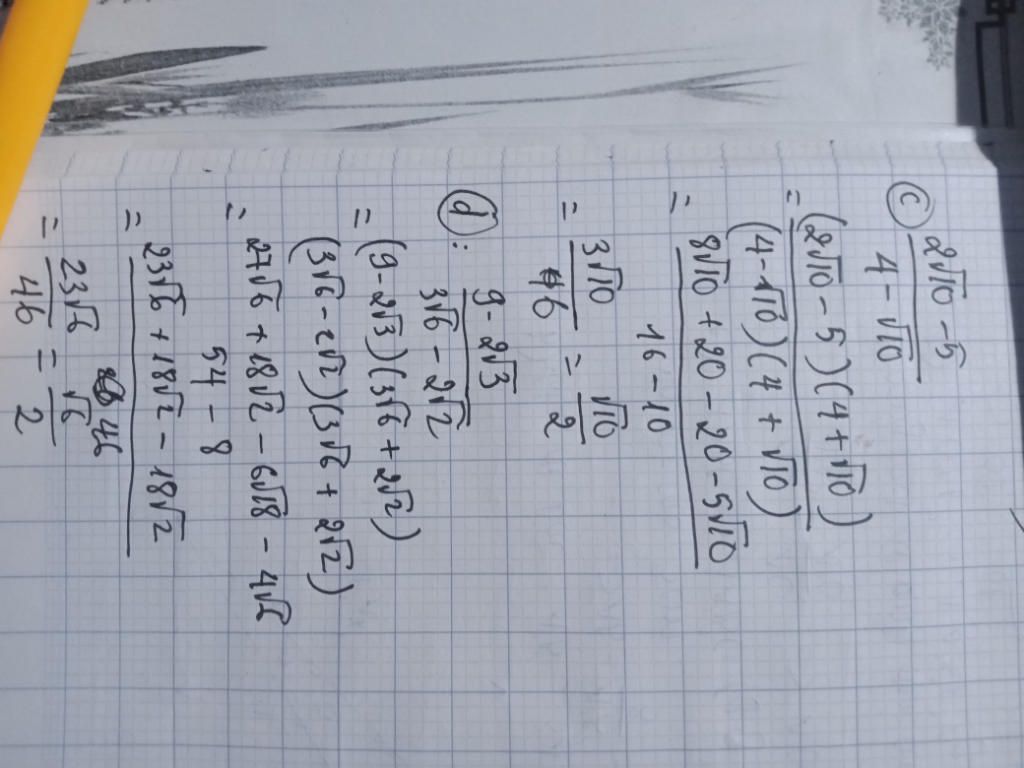 c) 2√10 - 5
4 - √10
= (2√10 - 5)(4 + √10)
(4 - √10)(4 + √10)
= 8√10 + 20 - 20 - 5√10
16 - 10
= 3√10 = √10
6 2
d): 9 - 2√3
3√6 - 2√2
= (9 - 2√3)(3√6 + 2√2)
(3√6 - 2√2)(3√6 + 2√2)
= 27√6 + 18√2 - 6√18 - 4√6
54 - 8
= 23√6 + 18√2 - 18√2
46
= 23√6 = √6
46 2